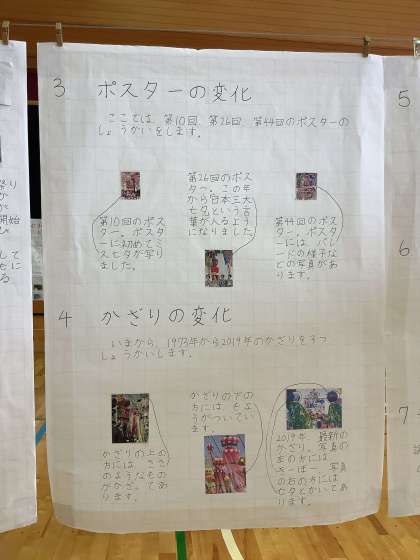 3 ポスターの変化
ここでは、第10回、第26回、第44回のポスターの
しょうかいをします。
第10回のポス
ター。ポスタ
ーに初めてミ
ス七夕が写り
ました。
第26回のポス
ター。この年
から日本三大
七夕という言
葉が入るよう
になりました
第44回のポス
ター。ポスタ
ーには、パレ
ードの様子な
どの写真があ
ります。
4 かざりの変化
いまから、1973年から2019年のかざりを3つ
しょうかいします。
かざりの上の
方には、ささ
のようなもの
がかざってあ
ります。
かざりの下の
方にはもよ
うがついてい
ます。
2019年、最新の
かざり。写真の
左の方には、
きーぽー、写真
の右の方には
七夕とかいてあ
ります。
5
6
7
開始
して